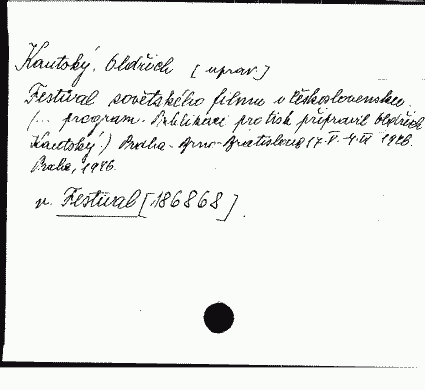 Kautský, Oldřich [uprav.]
Festival sovětského filmu v Československu.
(... program. Publikaci pro tisk připravil Oldřich
Kautský.) Praha - Brno - Bratislava 17.V. - 4.VI 1946.
Praha, 1946.
v. Festival [186868].